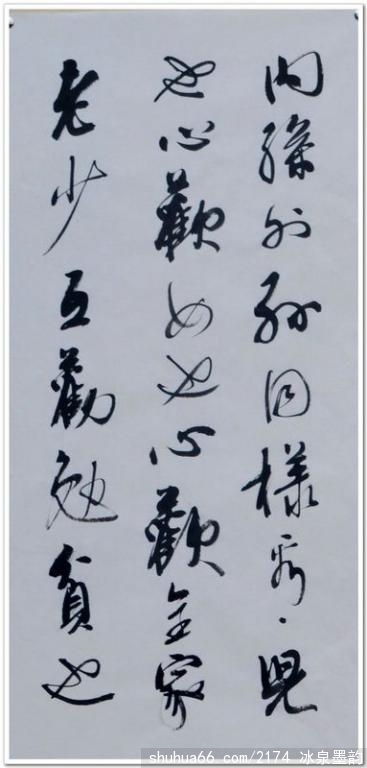 内孫外孙同樣看、兒
也心歡女也心歡全家
老少互勸勉貧也
shuhua66.com/2174 冰泉墨韵